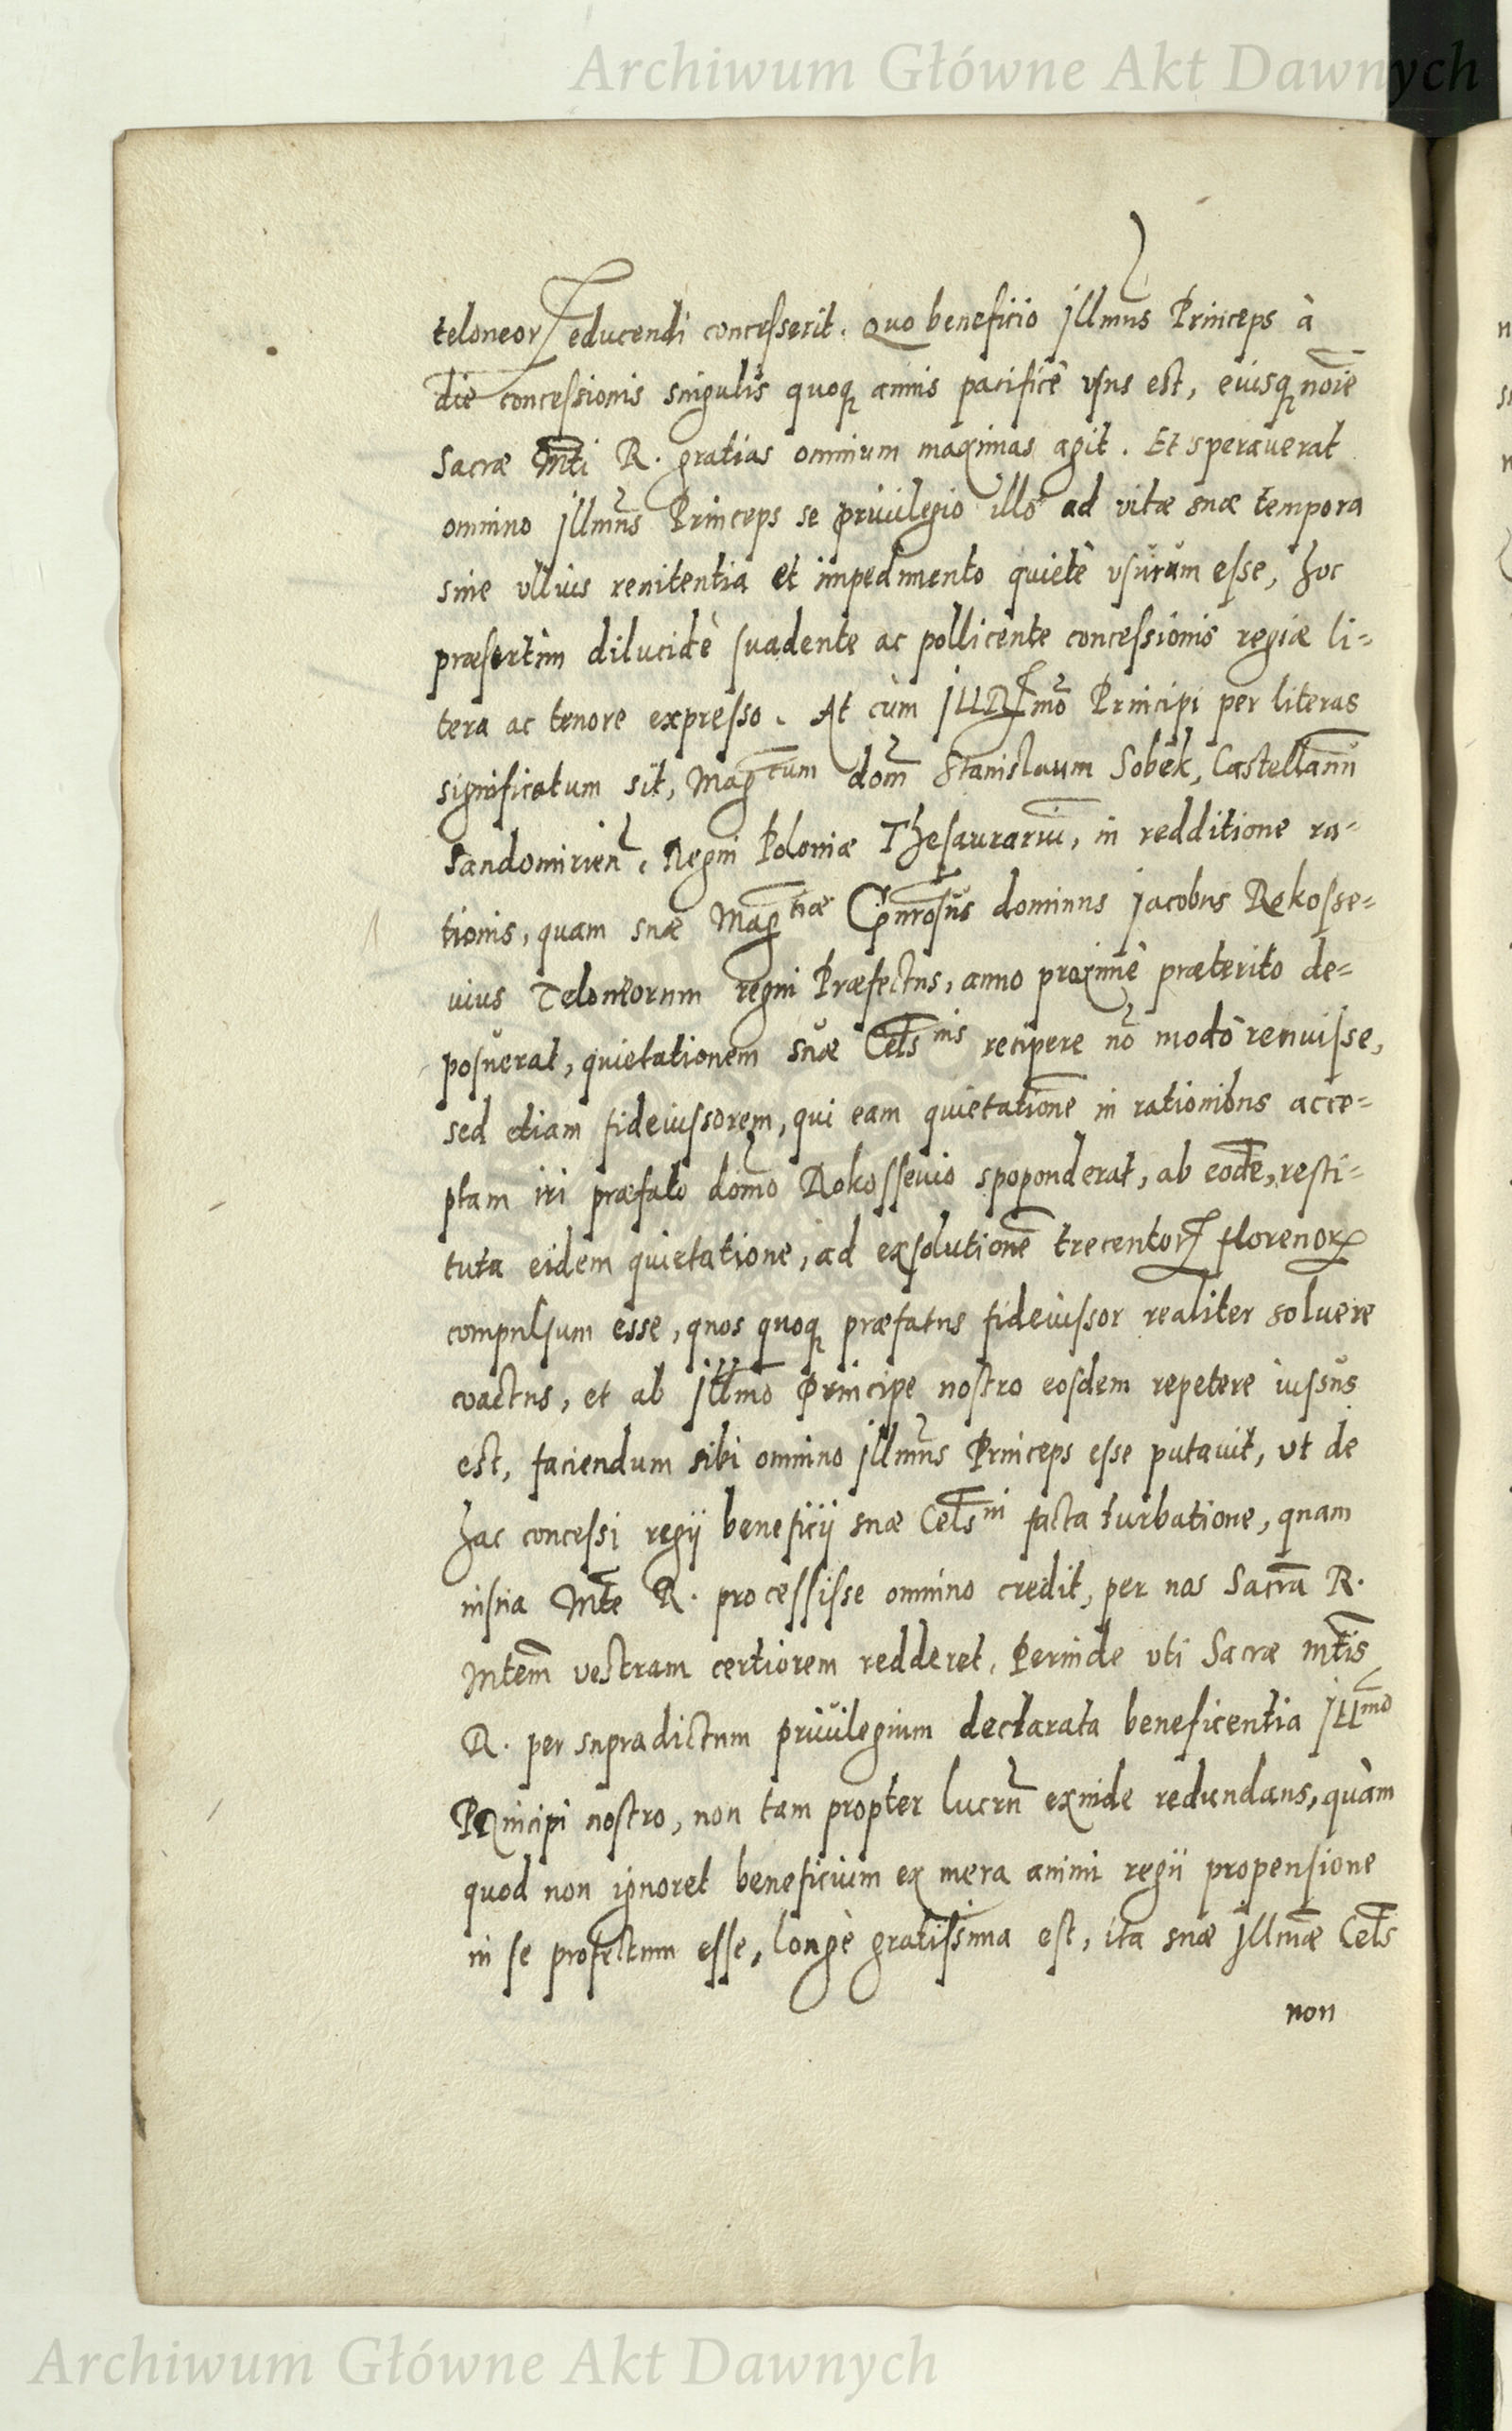 Archiwum Główne Akt Dawnych
teloneorꝝ educendi concesserit. Quo beneficio Jllmus Princeps à
die concessionis singulis quoqꝫ annis pacificè vsus est, eiusqꝫ noie
Sacræ Mti R. gratias omnium maximas agit. Et sperauerat
omnino Jllmus Princeps se priuilegio illo ad vitæ suæ tempora
sine vllius renitentia et impedimento quietè vsurum esse, hoc
præsertim dilucidè suadente ac pollicente concessionis regiæ li-
tera ac tenore expresso. At cùm JLLRmo Principi per literas
significatum sit, Magcum dom Stanislaum Sobek, Castellanũ
Sandomirien̄, Regni Poloniæ Thesaurariũ, in redditione ra-
tionis, quam suæ Magtiæ Gnrosus dominus Jacobus Rokosse-
uius Teloneorum regni Præfectus, anno proximè præterito de-
posuerat, quietationem suæ Celsnis recipere nō modò renuisse,
sed etiam fideiussorem, qui eam quietationē in rationibus acce-
ptam iri præfato domō Rokosseuio spoponderat, ab eodē, resti-
tuta eidem quietatione, ad exsolutionē trecentorꝝ florenorꝝ
compulsum esse, quos quoqꝫ præfatus fideiussor realiter soluere
coactus, et ab Jllmo Principe nostro eosdem repetere iussus
est, faciendum sibi omnino Jllmus Princeps esse putauit, vt de
hac concessi regij beneficij suæ Celsni facta turbatione, quam
inscia Mte R. processisse omnino credit, per nos Sacrā R.
Mtem vestram certiorem redderet. Perinde vti Sacræ Mtis
R. per supradictum priuilegium declarata beneficentia JLLmo
Principi nostro, non tam propter lucrū exinde redundans, quàm
quod non ignoret beneficium ex mera animi regii propensione
in se profectum esse, longè gratissima est, ita suæ Jllmæ Cels
non
Archiwum Główne Akt Dawnych